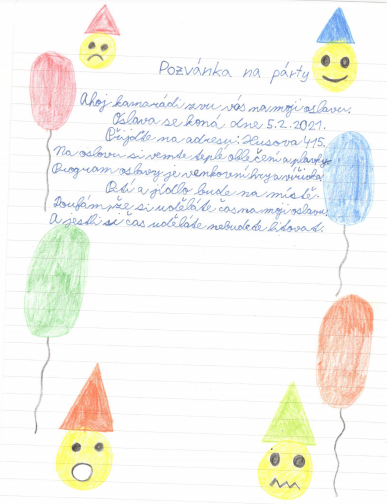 Pozvánka na párty
Ahoj kamarádi zvu vás na moji oslavu.
Oslava se koná dne 5.2.2021.
Přijďte na adresu: Husova 415.
Na oslavu si vemte teplé oblečení a plavky.
Program oslavy je venkovní hry a vířivka.
Pití a jídlo bude na místě.
Doufám, že si uděláte čas na moji oslavu.
A jestli si čas uděláte nebudete litovat.